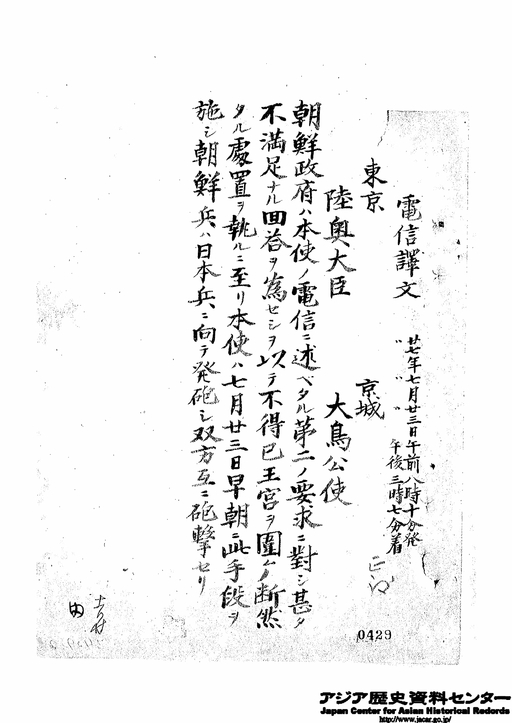 電信譯文
廿七年七月廿三日午前八時十分発
〃 〃 〃 午後三時七分着
東京 京城
陸奥大臣 大鳥公使
朝鮮政府ハ本使ノ電信ニ述ベタル第二ノ要求ニ對シ甚タ
不満足ナル回答ヲ為セシヲ以テ不得已王宮ヲ圍ムノ断然
タル處置ヲ執ルニ至リ本使ハ七月廿三日早朝ニ此手段ヲ
施シ朝鮮兵ハ日本兵ニ向テ発砲シ双方互ニ砲撃セリ
0429
アジア歴史資料センター
Japan Center for Asian Historical Records
http://www.jacar.go.jp/